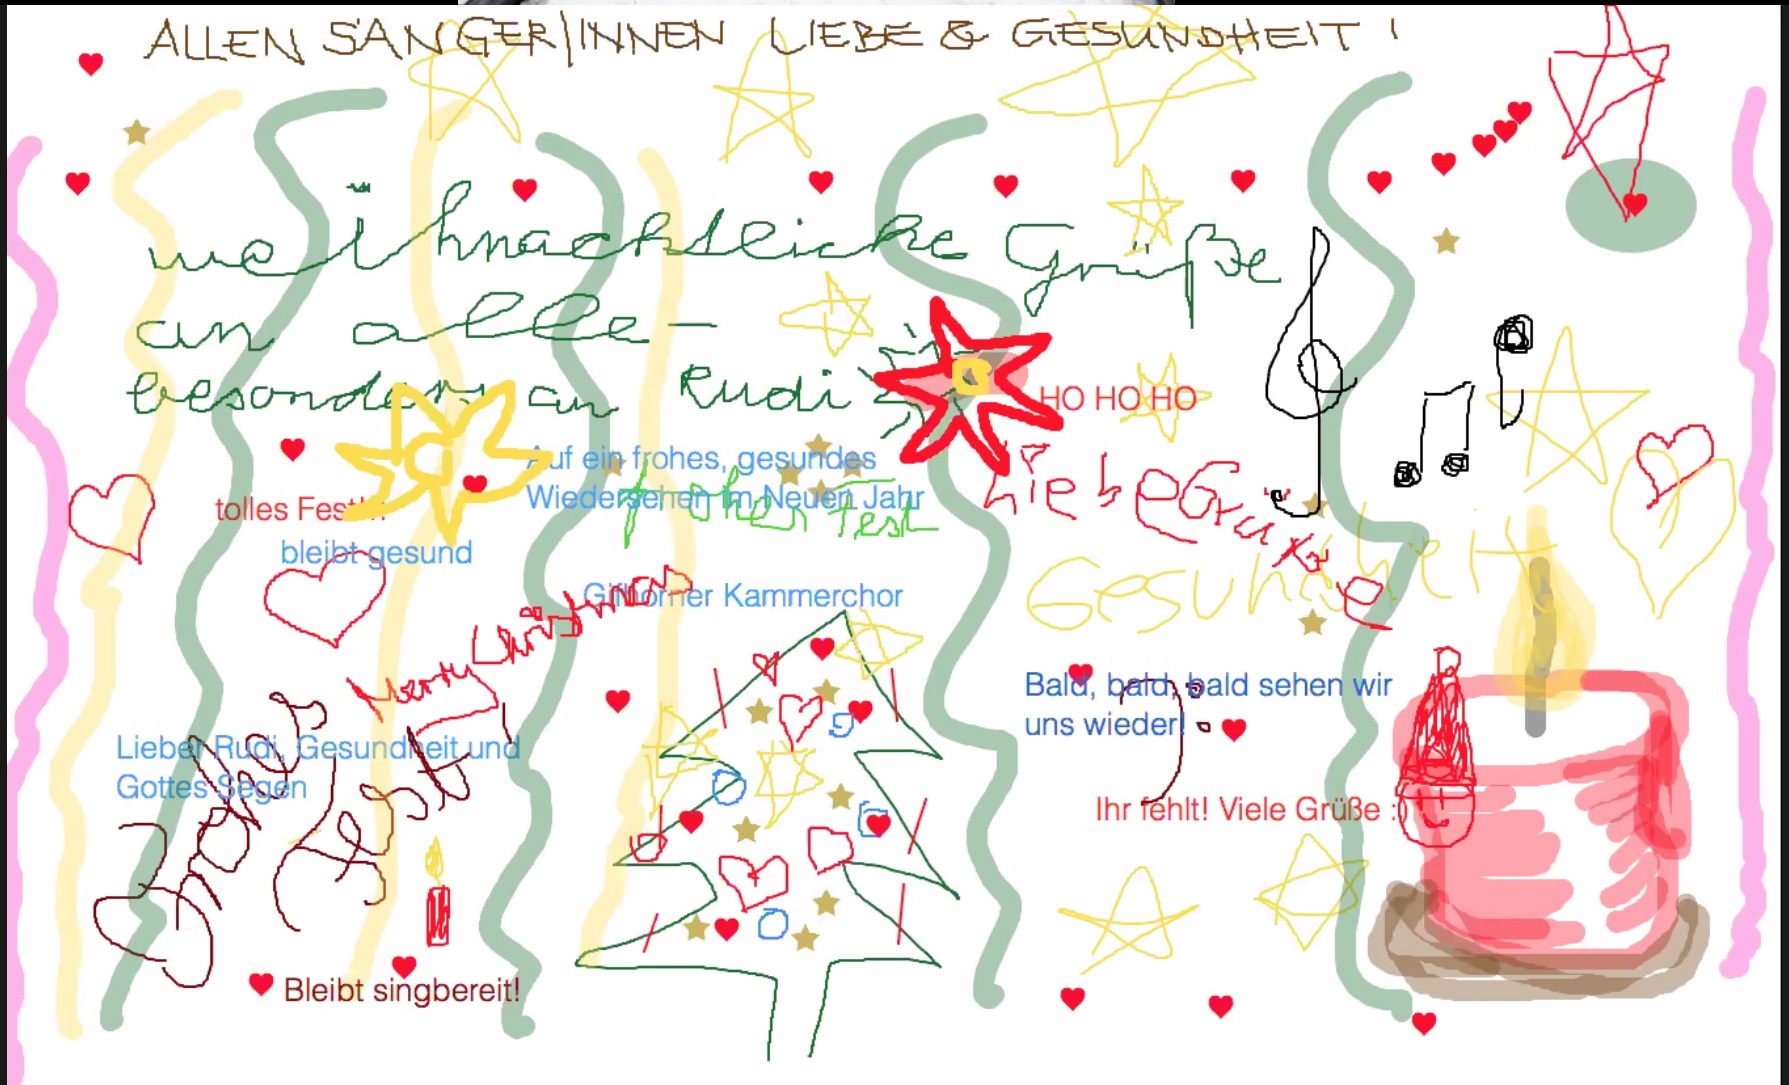 ALLEN SÄNGER/INNEN LIEBE & GESUNDHEIT !
weihnachtliche Grüße
an alle –
besonders an Rudi
HO HO HO
Auf ein frohes, gesundes
Wiedersehen im Neuen Jahr
frohes Fest
Liebe Grüße
tolles Fest!!!
bleibt gesund
Gesundheit
Gifhorner Kammerchor
Merry Christmas
Lieber Rudi, Gesundheit und
Gottes Segen
Frohes
Fest!
Bald, bald, bald sehen wir
uns wieder!
Ihr fehlt! Viele Grüße :)
Bleibt singbereit!